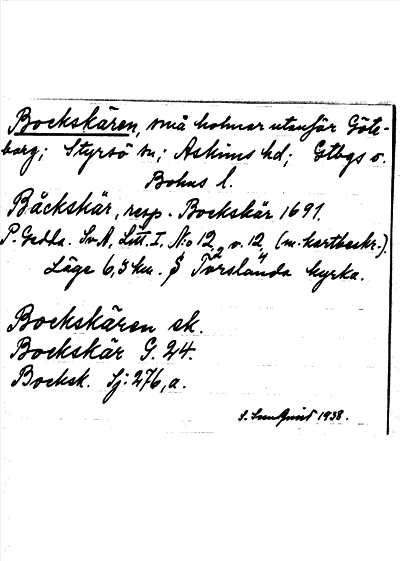 Bockskären, små holmar utanför Göte-
borg; Styrsö sn; Askims hd; Gtbgs o.
Bohus l.
Båckskär, resp. Bockskär 1691.
P. Gedda. SvA, Litt. I, N:o 12, o. 12, (m. kartbeskr.).
Läge 6,5 km. S Torslanda kyrka.
Bockskären ek.
Bockskär G. 24.
Bocksk. Sj: 276, a.
S. Sundquist 1938.